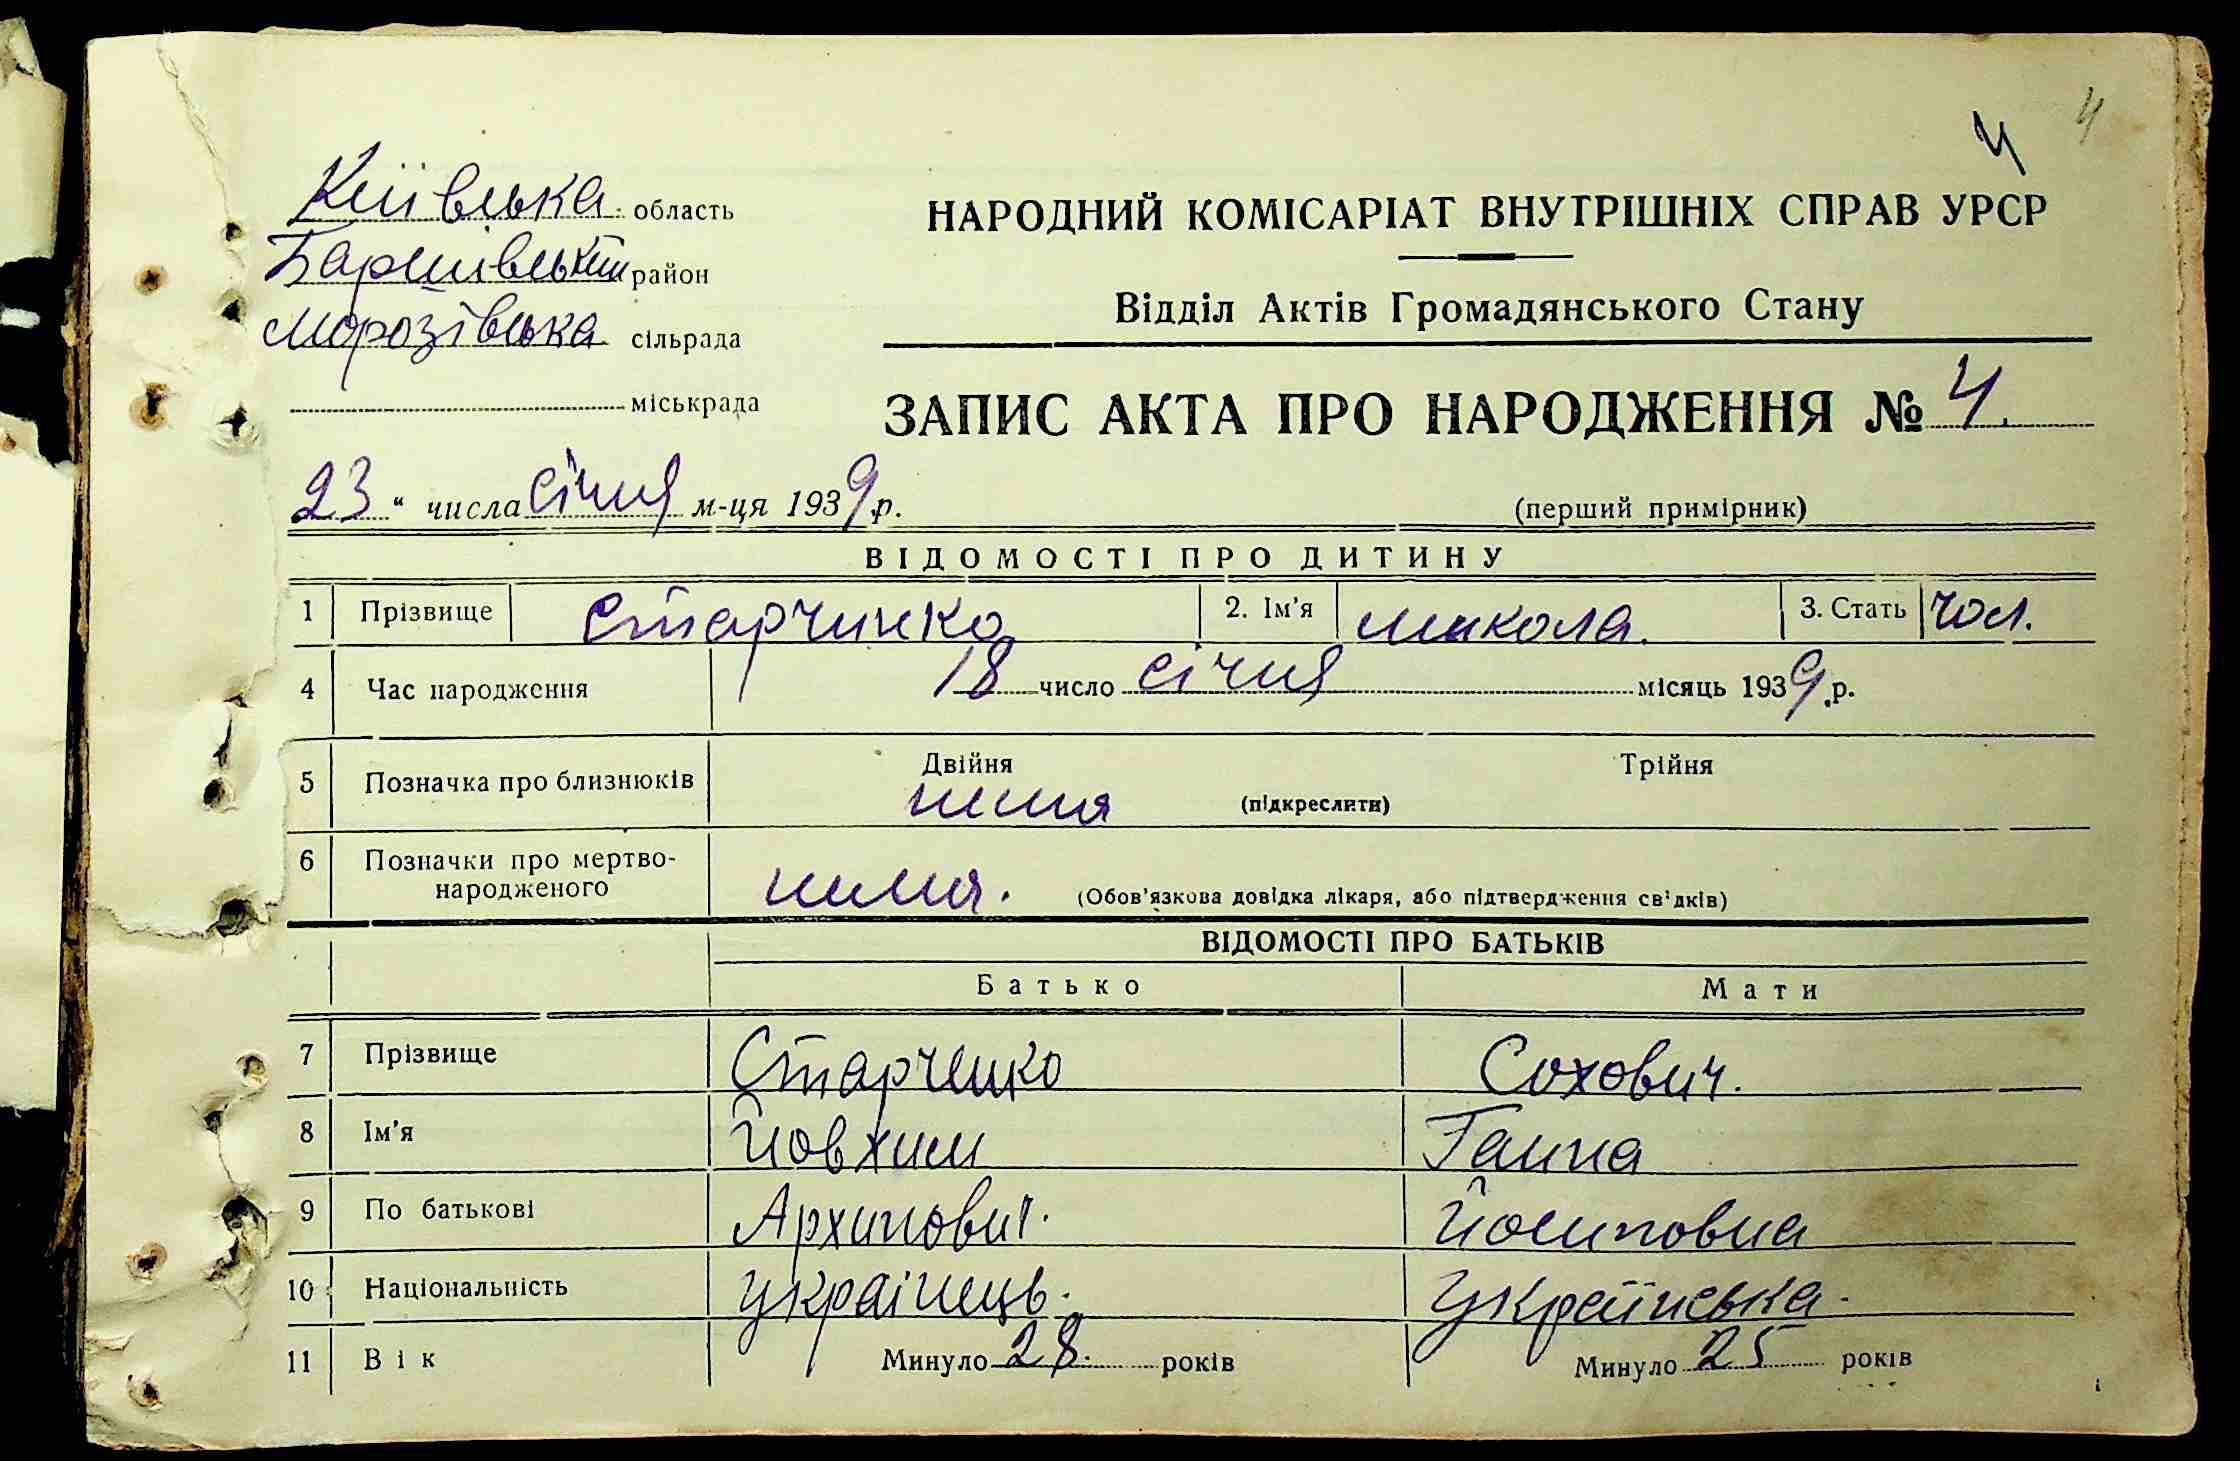 4
4
Київська область
Баришівський район
Морозівська сільрада
міськрада
НАРОДНИЙ КОМІСАРІАТ ВНУТРІШНІХ СПРАВ УРСР
Відділ Актів Громадянського Стану
ЗАПИС АКТА ПРО НАРОДЖЕННЯ № 4.
23 " числа січня м-ця 1939 р.
(перший примірник)
ВІДОМОСТІ ПРО ДИТИНУ
1 Прізвище Старчинко 2. Ім'я Микола. 3. Стать чол.
4 Час народження 18 число січня місяць 1939 р.
5 Позначка про близнюків Двійня Трійня
нима (підкреслити)
6 Позначки про мертво-
народженого нима. (Обов'язкова довідка лікаря, або підтвердження свідків)
ВІДОМОСТІ ПРО БАТЬКІВ
Батько Мати
7 Прізвище Старченко Сохович.
8 Ім'я Йовхим Ганна
9 По батькові Архипович. Йосиповна
10 Національність українець. Українська.
11 Вік Минуло 28. років Минуло 25 років